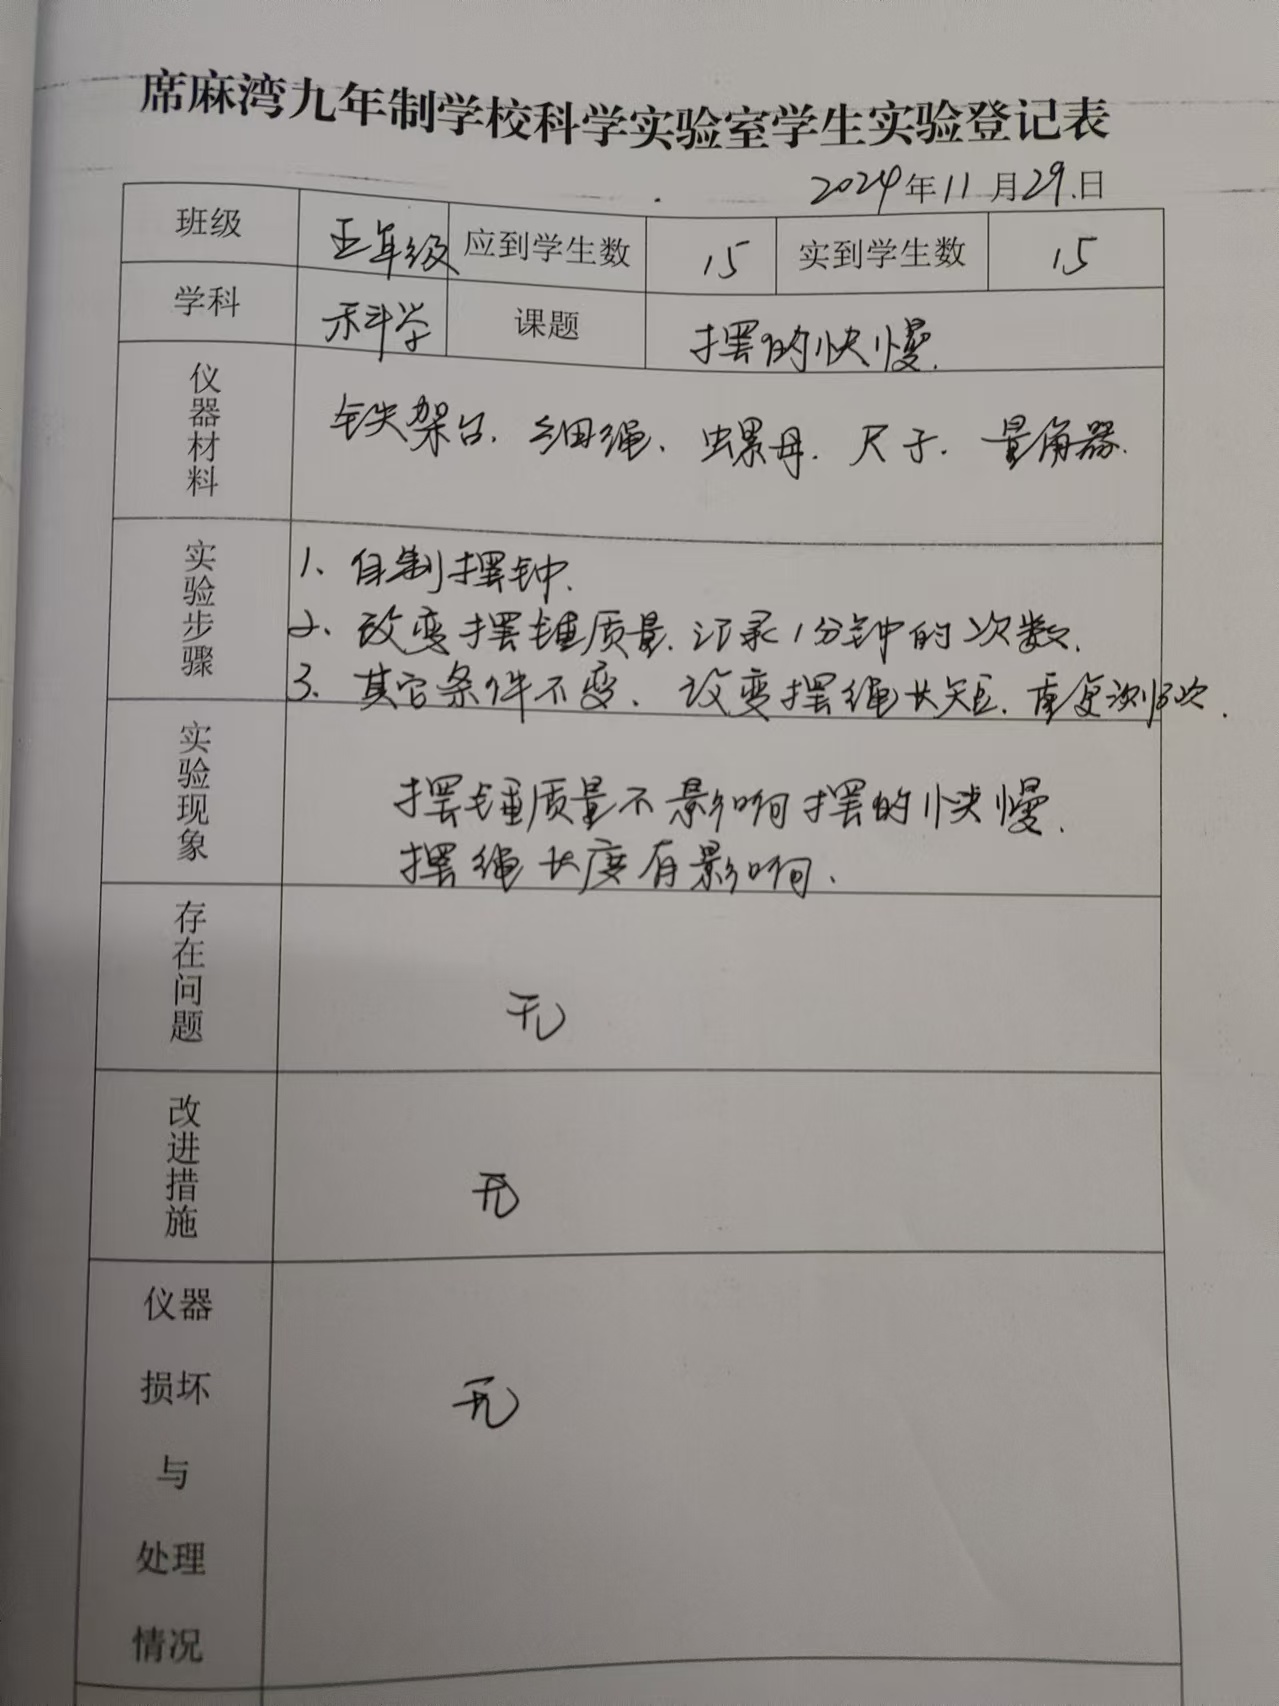 席麻湾九年制学校科学实验室学生实验登记表
2024年11月29日
班级 五年级 应到学生数 15 实到学生数 15
学科 科学 课题 摆的快慢.
仪器材料 铁架台、细绳、螺母、尺子、量角器.
实验步骤
1、自制摆钟.
2、改变摆锤质量,记录1分钟的次数.
3、其它条件不变、改变摆绳长短,重复测3次.
实验现象
摆锤质量不影响摆的快慢.
摆绳长度有影响.
存在问题 无
改进措施 无
仪器
损坏 无
与
处理
情况